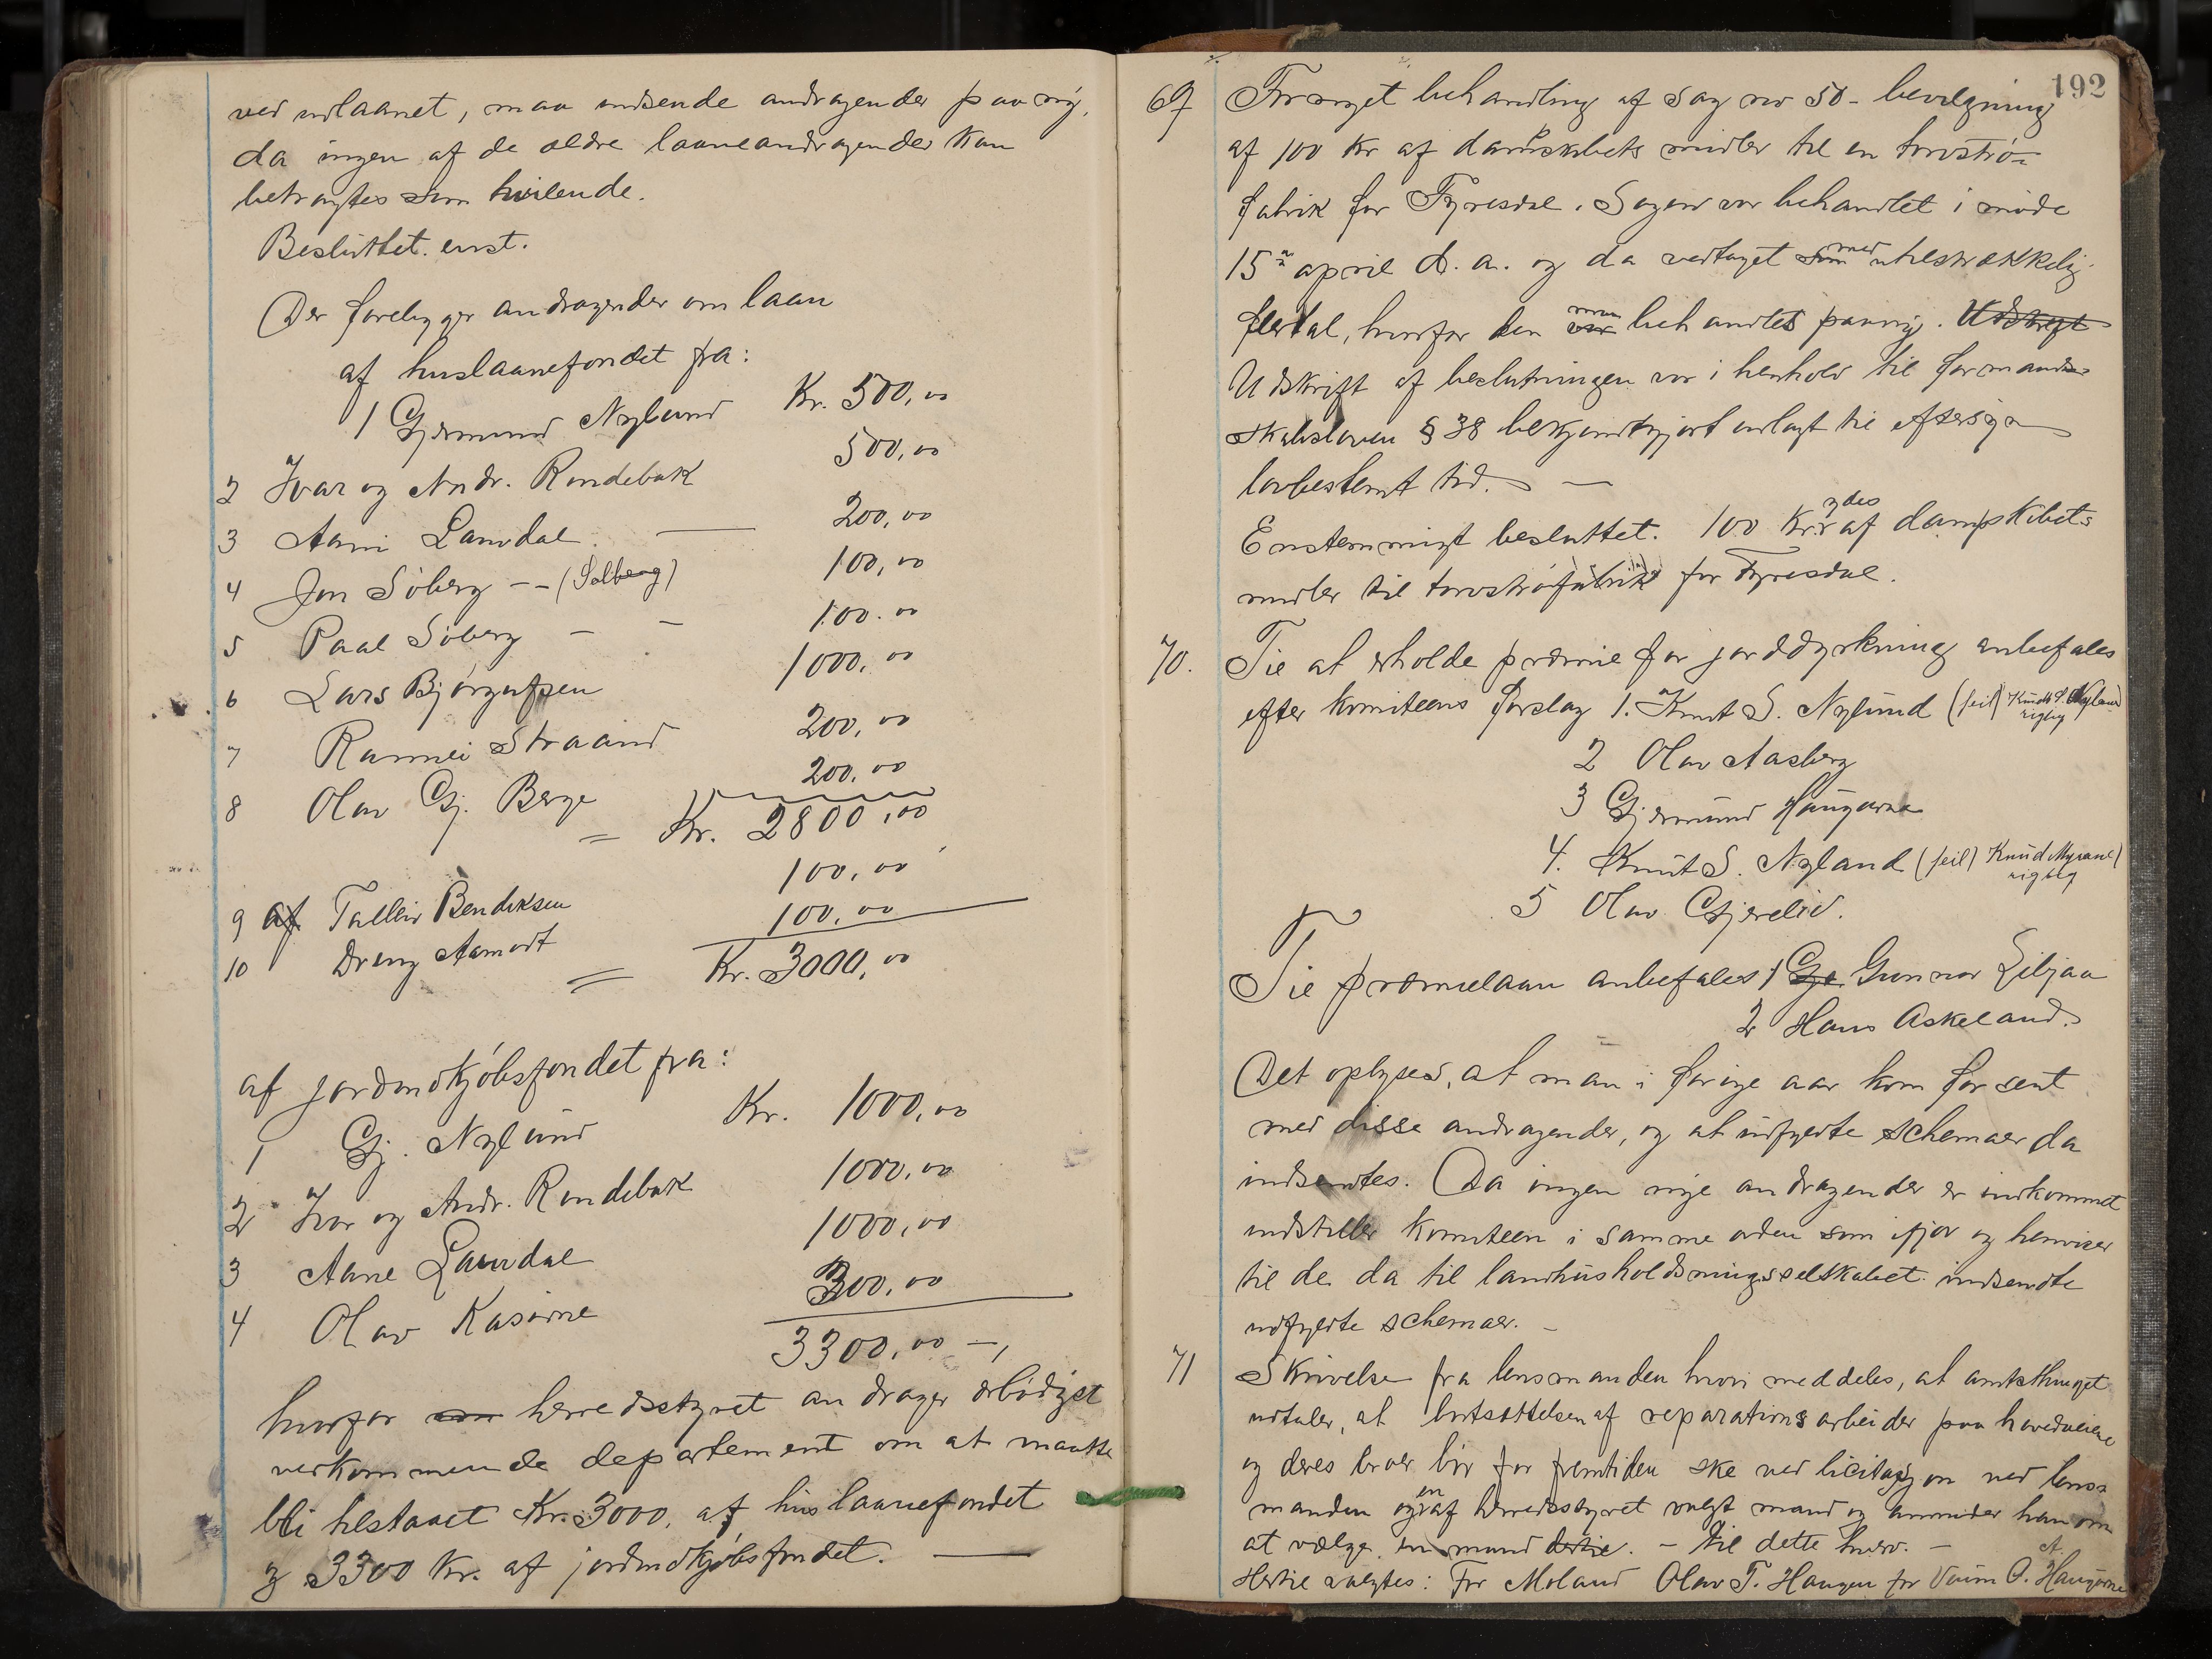 ved udlaanet, maa indsende andragender paany,
da ingen af de ældre laaneandragender kan
betragtes som hvilende.
Besluttet enst.
Der foreligger andragender om laan
af huslaanefondet fra:
1 Gjermund Nylund Kr. 500,00
2 Ivar og Andr. Rondebak 500,00
3 Aani Laurdal 200,00
4 Jon Söberg -- (Solberg) 100,00
5 Paal Söberg - - 100.00
6 Lars Bjørgufsen 1000,00
7 Rannei Straand 200,00
8 Olav Gj. Berge 200,00
= Kr. 2800,00
9 af Talleiv Bendiksen 100,00
10 Dreng Aamodt 100,00
= Kr. 3000,00
af jordindkjöbsfondet fra:
1 Gj. Nylund Kr. 1000,00
2 Ivar og Andr. Rondebak 1000,00
3 Aane Laurdal 1000,00
4 Olav Kasine 300,00
3300,00 -,
hvorfor herredsstyret andrager ærbödigst
vedkommende departement om at maatte
bli tilstaaet Kr. 3000, af huslaanefondet
og 3300 Kr. af jordindkjöbsfondet.
192
69 Fornyet behandling af sag no 50 - bevilgning
af 100 Kr af dampskibets midler til en torvströ-
fabrik for Fyresdal. Sagen var behandlet i möde
15de april d. a. og da vedtaget som med utilstrækkelig
flertal, hvorfor den var maa behandles paany. Udskrift
Udskrift af beslutningen var i henhold til formand-
skabsloven § 38 bekjendtgjort udlagt til eftersyn
lovbestemt tid. -
Enstemmigt besluttet. 100 Kr. ydes af dampskibets
midler til torvströfabrik for Fyresdal.
70. Til at erholde præmie for jorddyrkning anbefales
efter komiteens forslag 1. Knut S. Nylund (feil) Knudt S. Nyland rigtig
2 Olav Aasberg
3 Gjermund Haugarne
4. Knut S. Nyland (feil) Knud Myrane) rigtig
5 Olav Gjerelid.
Til præmielaan anbefales 1 Gje Gunnar Liljaa
2 Hans Askeland.
Det oplyses, at man i forige aar kom for sent
med disse andragender, og at udfyldte schemaer da
indsendtes. Da ingen nye andragender er indkommet
indstiller komiteen i samme orden som ifjor og henviser
til de da til landhusholdningsselskabet indsendte
udfyldte schemaer. -
71 Skrivelse fra lensmanden hvori meddeles, at amtsthinget
udtaler, at bortsættelsen af reparationsarbeider paa hovedveiene
og deres broer bör for fremtiden ske ved licitasjon ved lens-
manden og en af herredsstyret valgt mand og anmoder han om
at vælge en mand dertil. - til dette hverv. -
Hertil valgtes: For Moland Olav T. Haugen for Veum O. A. Haugarne